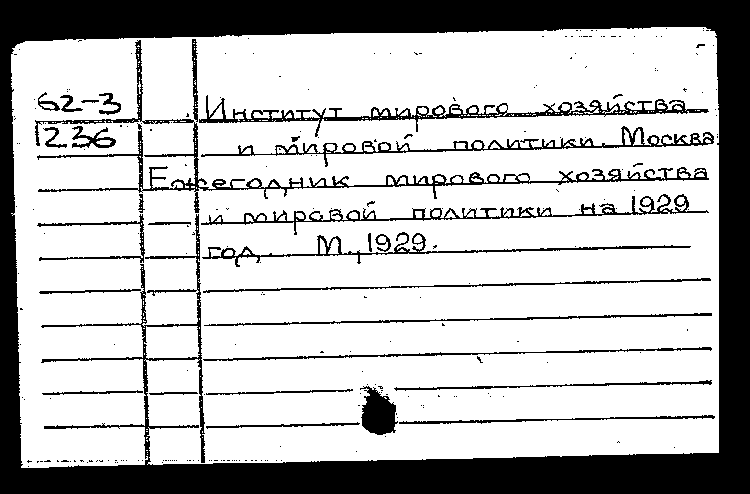 62-3 Институт мирового хозяйства
1236 и мировой политики. Москва.
Ежегодник мирового хозяйства
и мировой политики на 1929
год. М., 1929.